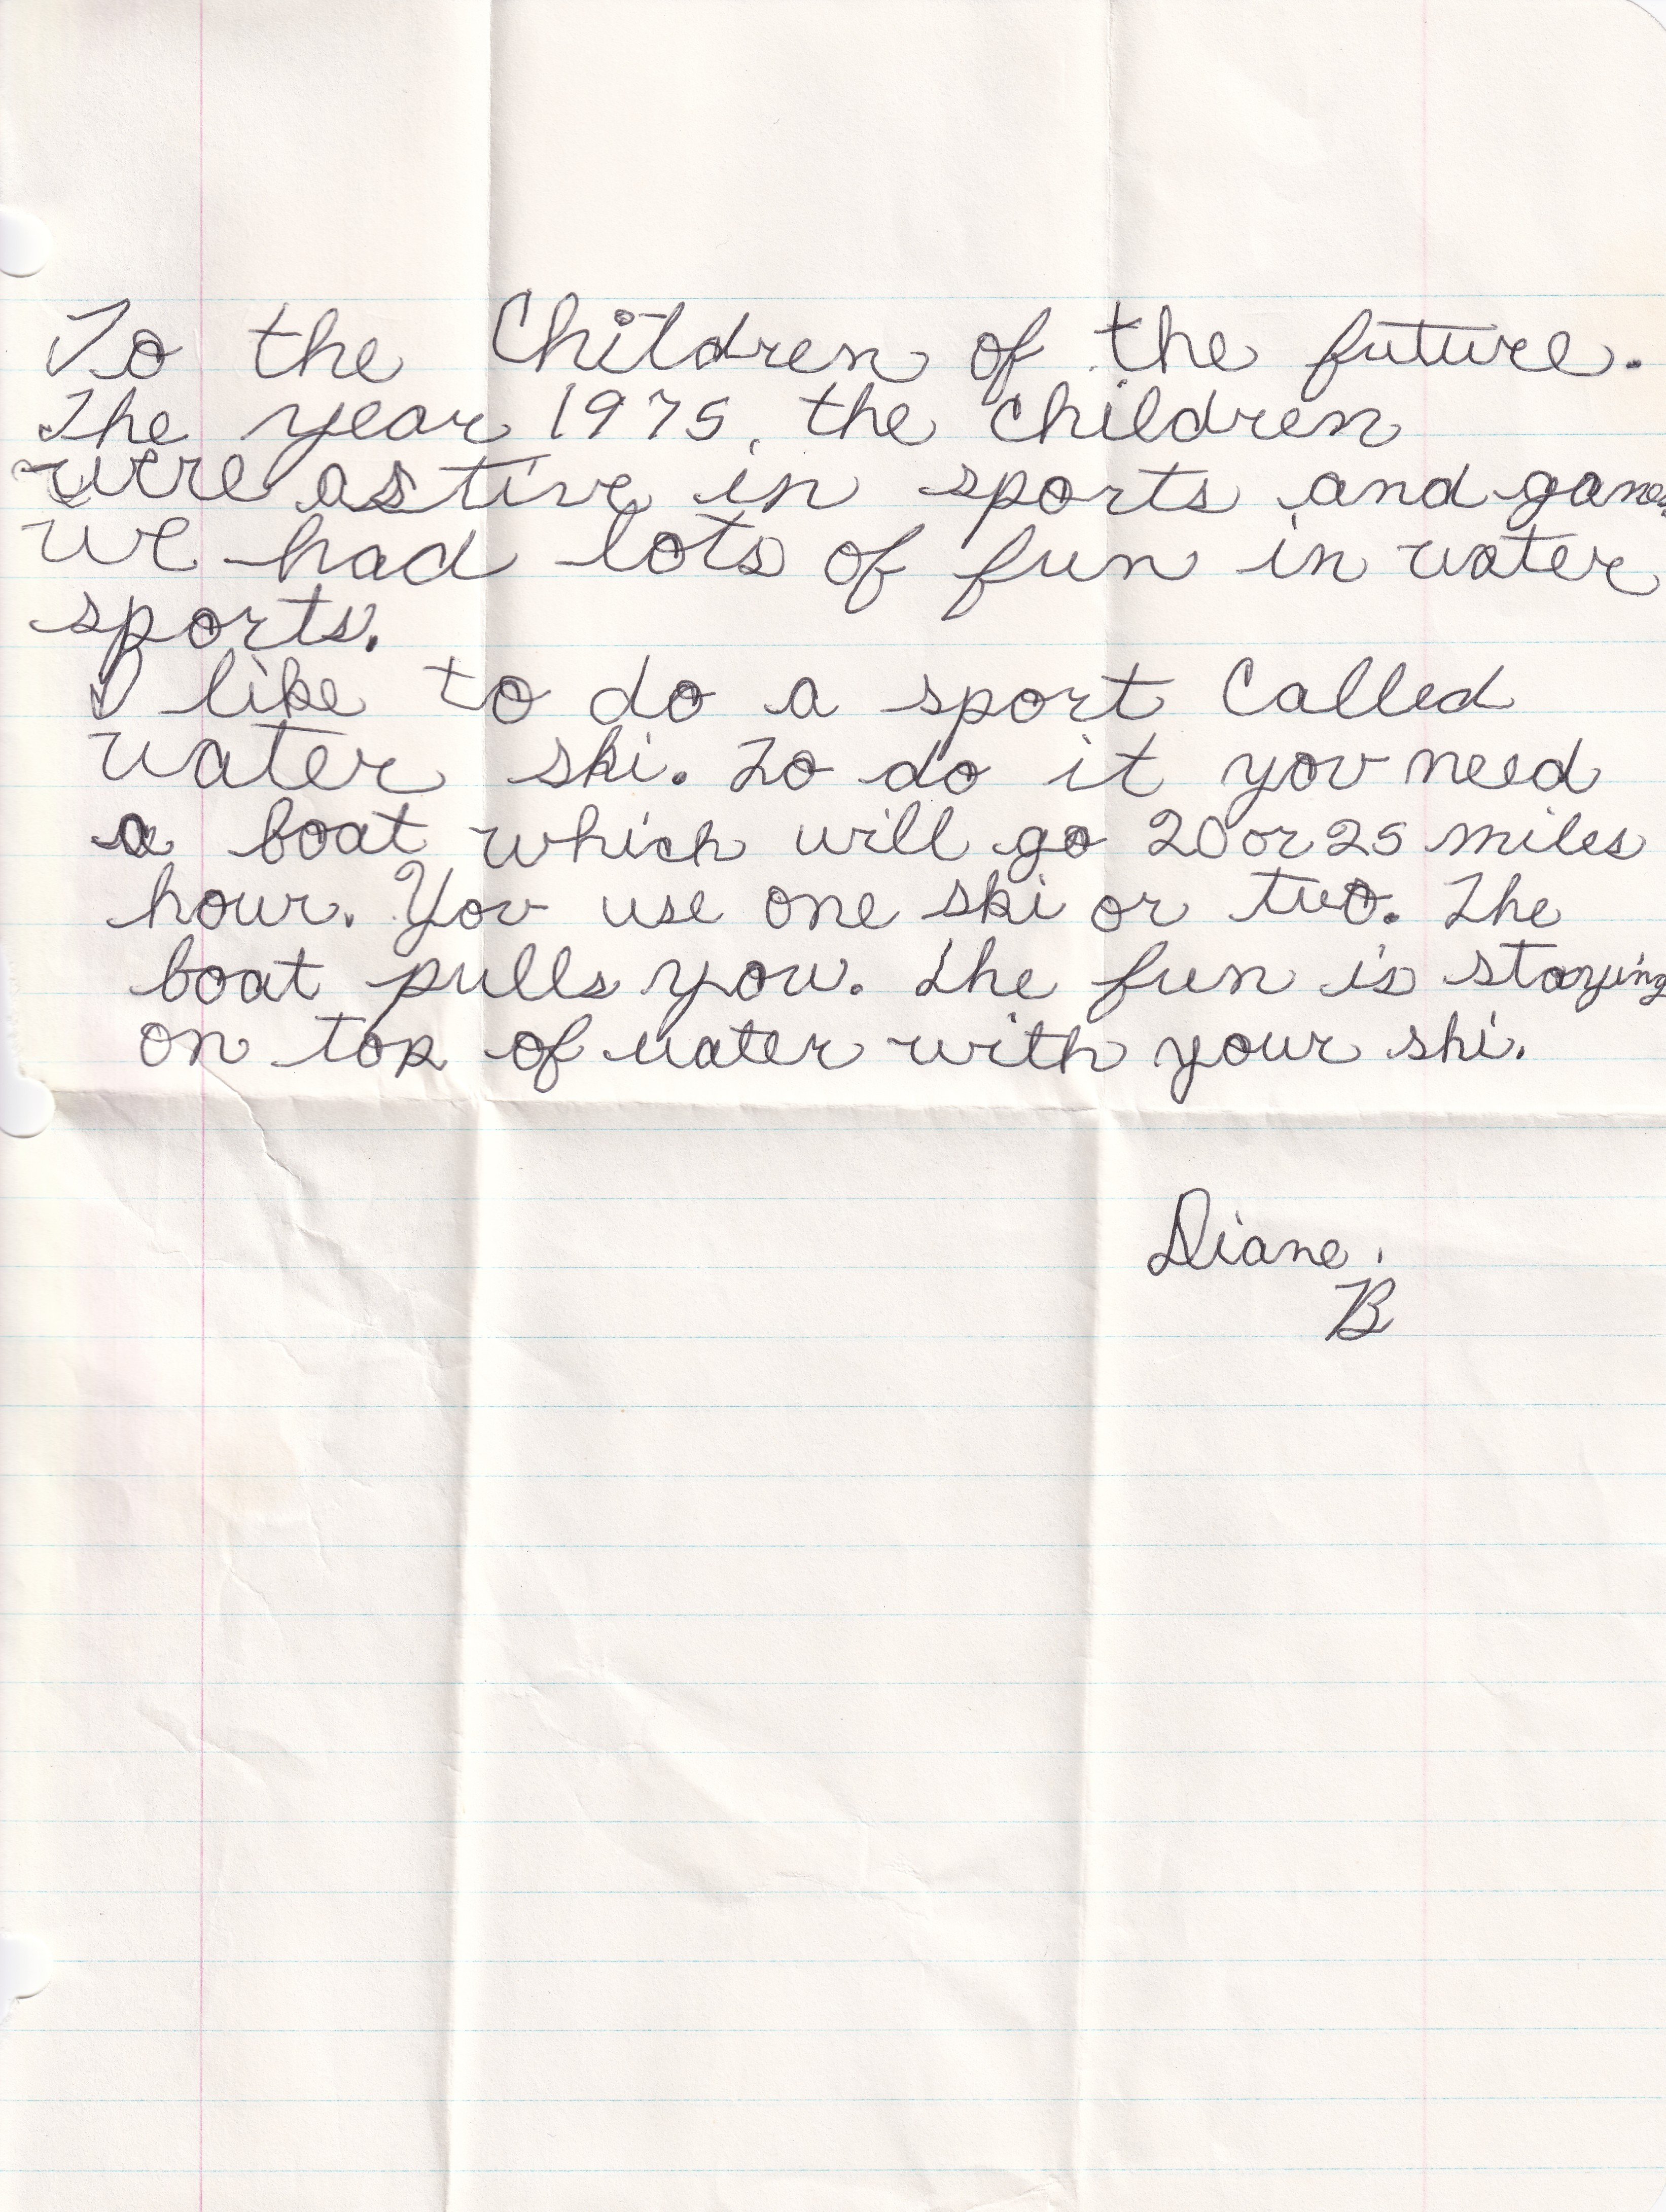 To the Children of the future.
The year 1975, the children
were astive in sports and games
we had lots of fun in water
sports.
I like to do a sport called
water ski. To do it you need
a boat which will go 20 or 25 miles
hour. You use one ski or two. The
boat pulls you. The fun is staying
on top of water with your ski.
Diane.
B